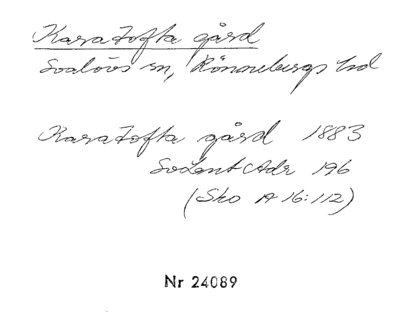 Karatofta gård
Svalövs sn, Rönnebergs hd
Karatofta gård 1883
SvLantAdr 196
(Sko A 16:112)
Nr 24089